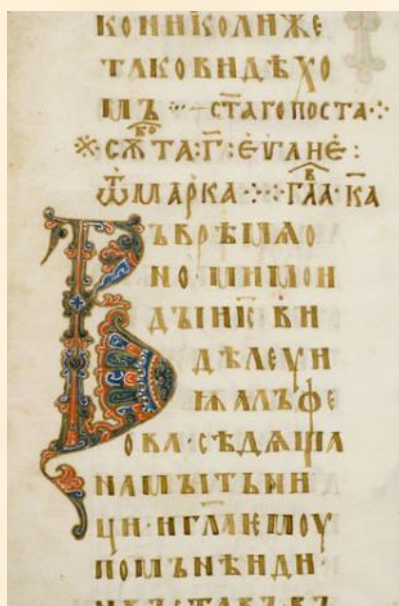 КОНИКОЛИЖЕ
ТАКОВИДѢХО
МЪ ·:·— СТ҃АГОПОСТА·:·
※СѪБОТА·Г҃·:ЕѴАНЕ:
ѾМАРКА·:·ГЛАВ·К҃А
ВЪВРѢМѦО
НО·МИМОИ
ДЫИІ҃С ВИ
ДѢЛЕѴИ
ѬАЛЪФЕ
ОВА·СѢДѦЩА
НАМЫТЬНИ
ЦИ·ИГЛ҃АѤМОУ
ПОМЪНѢИДИ·
ИВЪСТАВЪВЪ